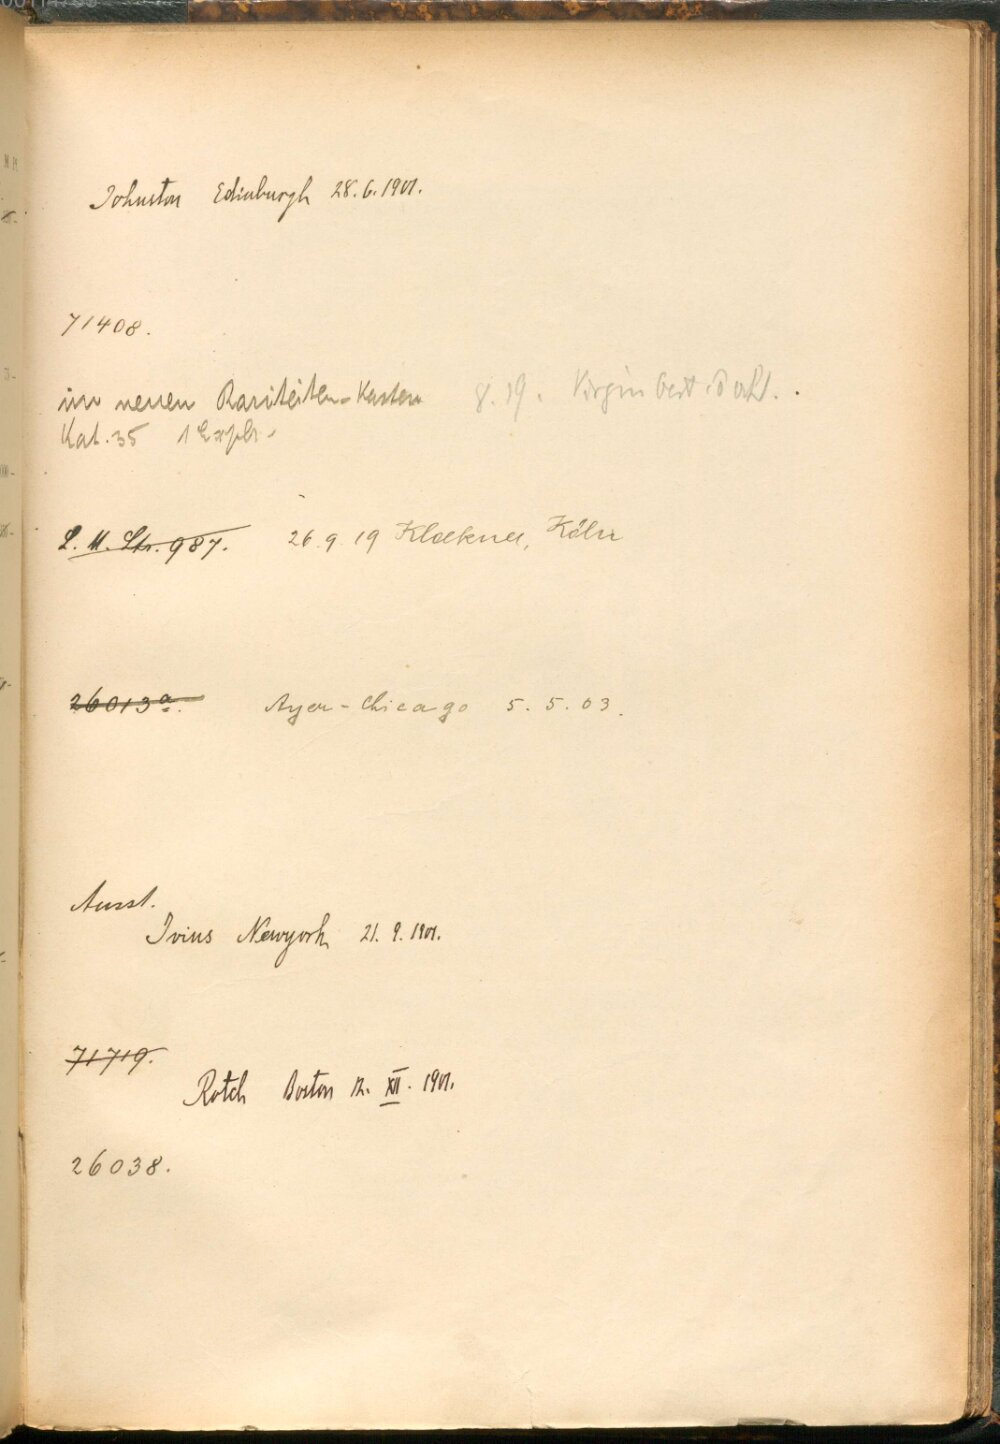 Johnston Edinburgh 28.6.1901.
71408.
im neuen Raritäten-Kasten 8.19.
Kat. 35 1 Explr.
L. M. Str. 987. 26.9.19 Klöckner, Köln
26013a. Ayer-Chicago 5.5.03.
Ausst.
Ivins Newyork 21.9.1901.
71719.
Rotch Boston 12. XII. 1901.
26038.